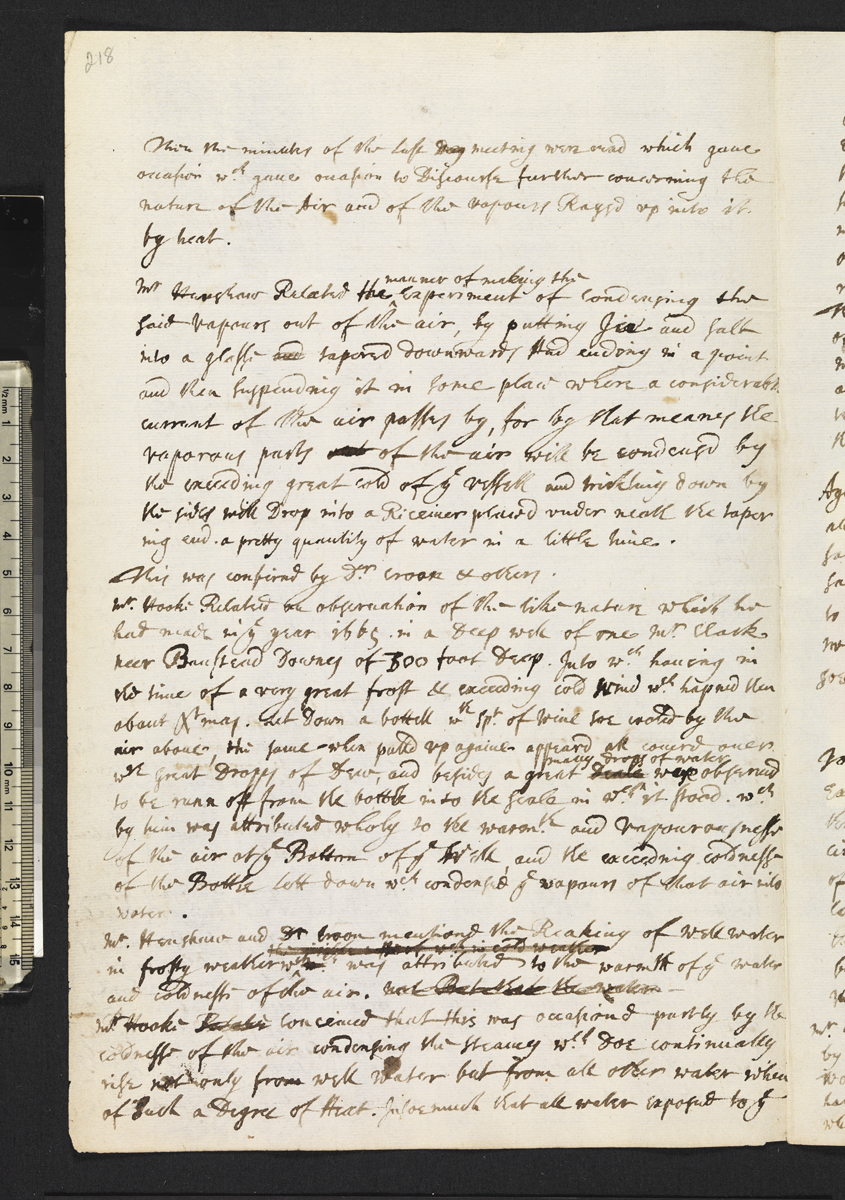 218
Then the minutes of the last Day meeting were read which gaue
occasion wch gaue occasion to Discourse further concerning the
nature of the Air and of the vapours Raysd vp into it.
by heat.
mr Henshaw Related the manner of making the Experiment of condensing the
said vapours out of the air, by putting Jce and salt
into a glasse and tapered downwards And ending in a point
and then suspending it in some place where a considerable
current of the air passes by, for by that meanes the
vaporous parts out of the air will be condensd by
the exceeding great cold of ye vessell and trickling down by
the sides will Drop into a Receiuer placed vnder neath the taper
ing end. a pretty quantity of water in a little time.
This was confirmd by Dr. croon & others.
mr. Hooke Related an obseruation of the like nature which he
had made in ye year 1665. in a Deep well of one mr Clark
neer Banstead Downes of 300 foot Deep. Into wch hauing in
the time of a very great frost & exceeding cold wind wch hapned then
about Xtmas. let down a bottell wth spt. of wine well coold by the
air aboue, the same when pulld vp againe appeard all couerd ouer
wth great Dropps of Dew, and besides a great deale many drops of water were obserued
to be runn off from the bottle into the scale in wch it stood. wch
by him was attributed wholy to the warmth and vapourousnesse
of the air at ye Bottom of ye Well and the exceeding coldnesse
of the Bottle lett down wch condensed ye vapours of that air into
water.
mr. Henshaw and Dr Croon mentiond the Reaking of well water
in frosty weather wch was attributed to the warmth of ye water
and coldness of the air. not But that the water
mr Hooke Relate conceiued that this was occasiond partly by the
coldnesse of the air condensing the steams wch Doe continually
rise not only from well water but from all other water when
of such a Degree of Heat. Insoemuch that all water exposed to ye